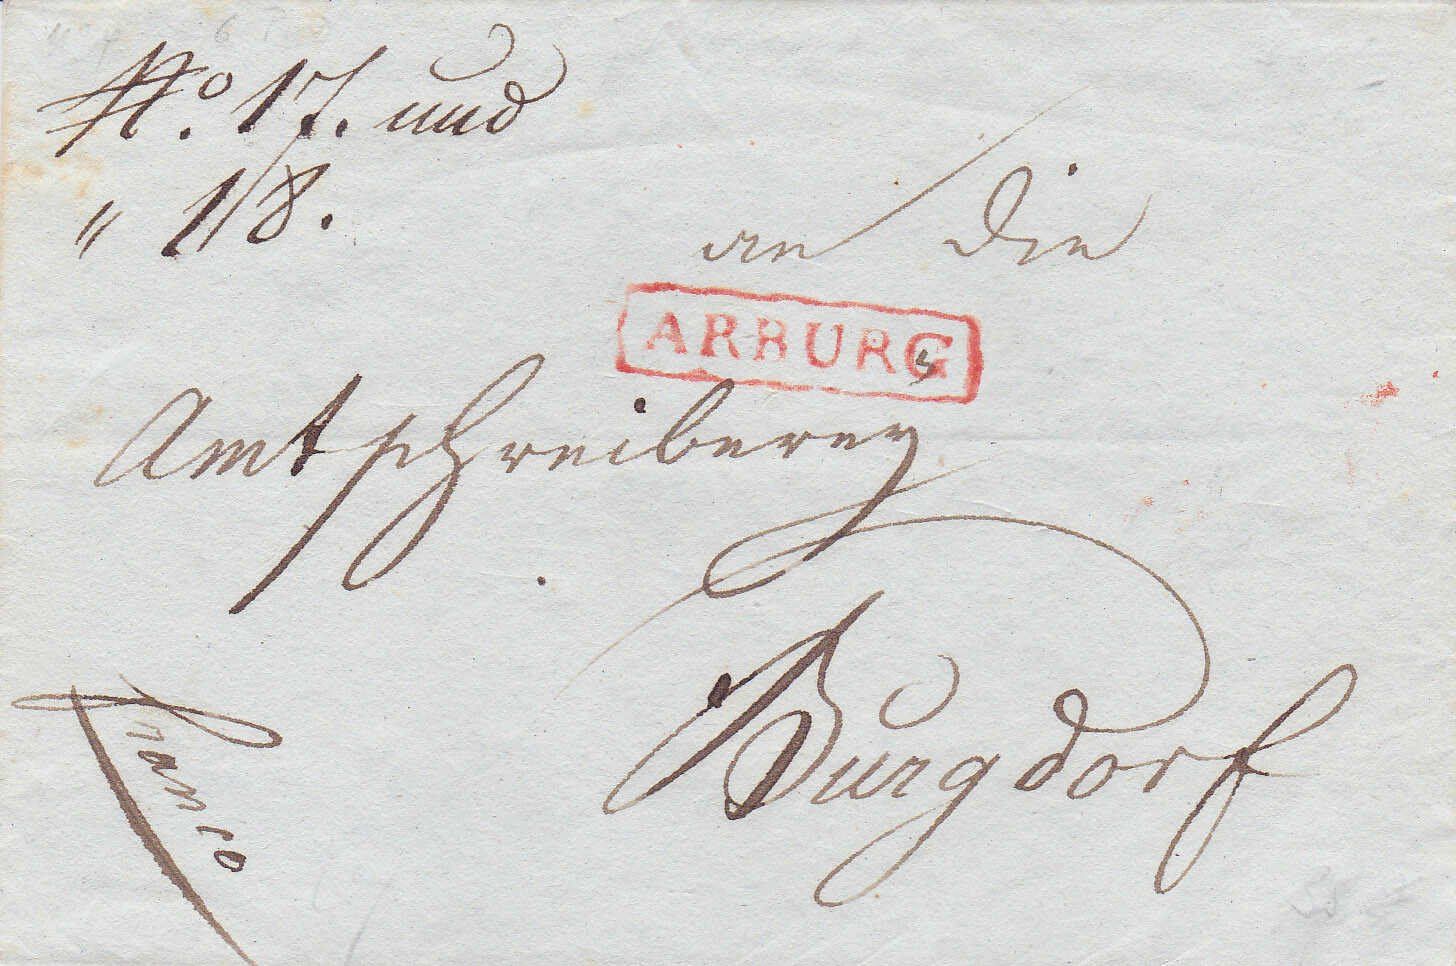 No. 17. und
" 18.
an die
ARBURG
Amtschreiberey
Burgdorf
franco